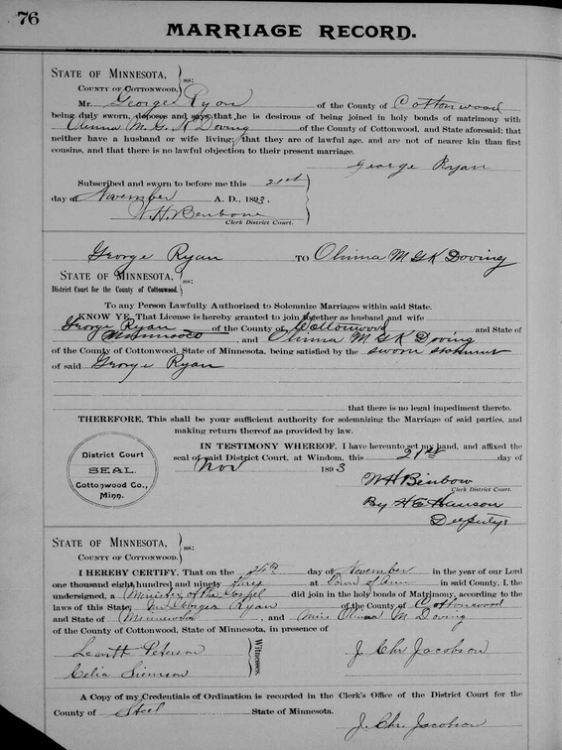 76
MARRIAGE RECORD.
STATE OF MINNESOTA,
COUNTY OF COTTONWOOD.
ss:
Mr. George Ryan of the County of Cottonwood
being duly sworn, deposes and says that he is desirous of being joined in holy bonds of matrimony with
Olinna M. G. K Doving of the County of Cottonwood, and State aforesaid; that
neither have a husband or wife living; that they are of lawful age, and are not of nearer kin than first
cousins, and that there is no lawful objection to their present marriage.
George Ryan
Subscribed and sworn to before me this 21st
day of November A. D., 1893.
W. H. Benbow
Clerk District Court.
George Ryan TO Olinna M G K Doving
STATE OF MINNESOTA,
District Court for the County of Cottonwood.
ss:
To any Person Lawfully Authorized to Solemnize Marriages within said State.
KNOW YE, That License is hereby granted to join together as husband and wife
George Ryan of the County of Cottonwood and State of
Minnesota, and Olinna M G K Doving
of the County of Cottonwood, State of Minnesota, being satisfied by the sworn statement
of said George Ryan
that there is no legal impediment thereto.
THEREFORE, This shall be your sufficient authority for solemnizing the Marriage of said parties, and
making return thereof as provided by law.
IN TESTIMONY WHEREOF, I have hereunto set my hand, and affixed the
seal of said District Court, at Windom, this 21st day of
Nov 1893
District Court
SEAL.
Cottonwood Co.,
Minn.
W H Benbow
Clerk District Court.
By H E Hanson
Deputy
STATE OF MINNESOTA,
COUNTY OF COTTONWOOD.
ss:
I HEREBY CERTIFY, That on the day of November in the year of our Lord
one thousand eight hundred and ninety three at Town of Ann in said County, I, the
undersigned, a Minister of the Gospel did join in the holy bonds of Matrimony, according to the
laws of this State, Mr George Ryan of the County of Cottonwood
and State of Minnesota, and Miss Olinna M. Doving
of the County of Cottonwood, State of Minnesota, in presence of
Peterson
Celia
Witnesses.
J. Chr. Jacobson
A Copy of my Credentials of Ordination is recorded in the Clerk's Office of the District Court for the
County of Steel State of Minnesota.
J. Chr. Jacobson